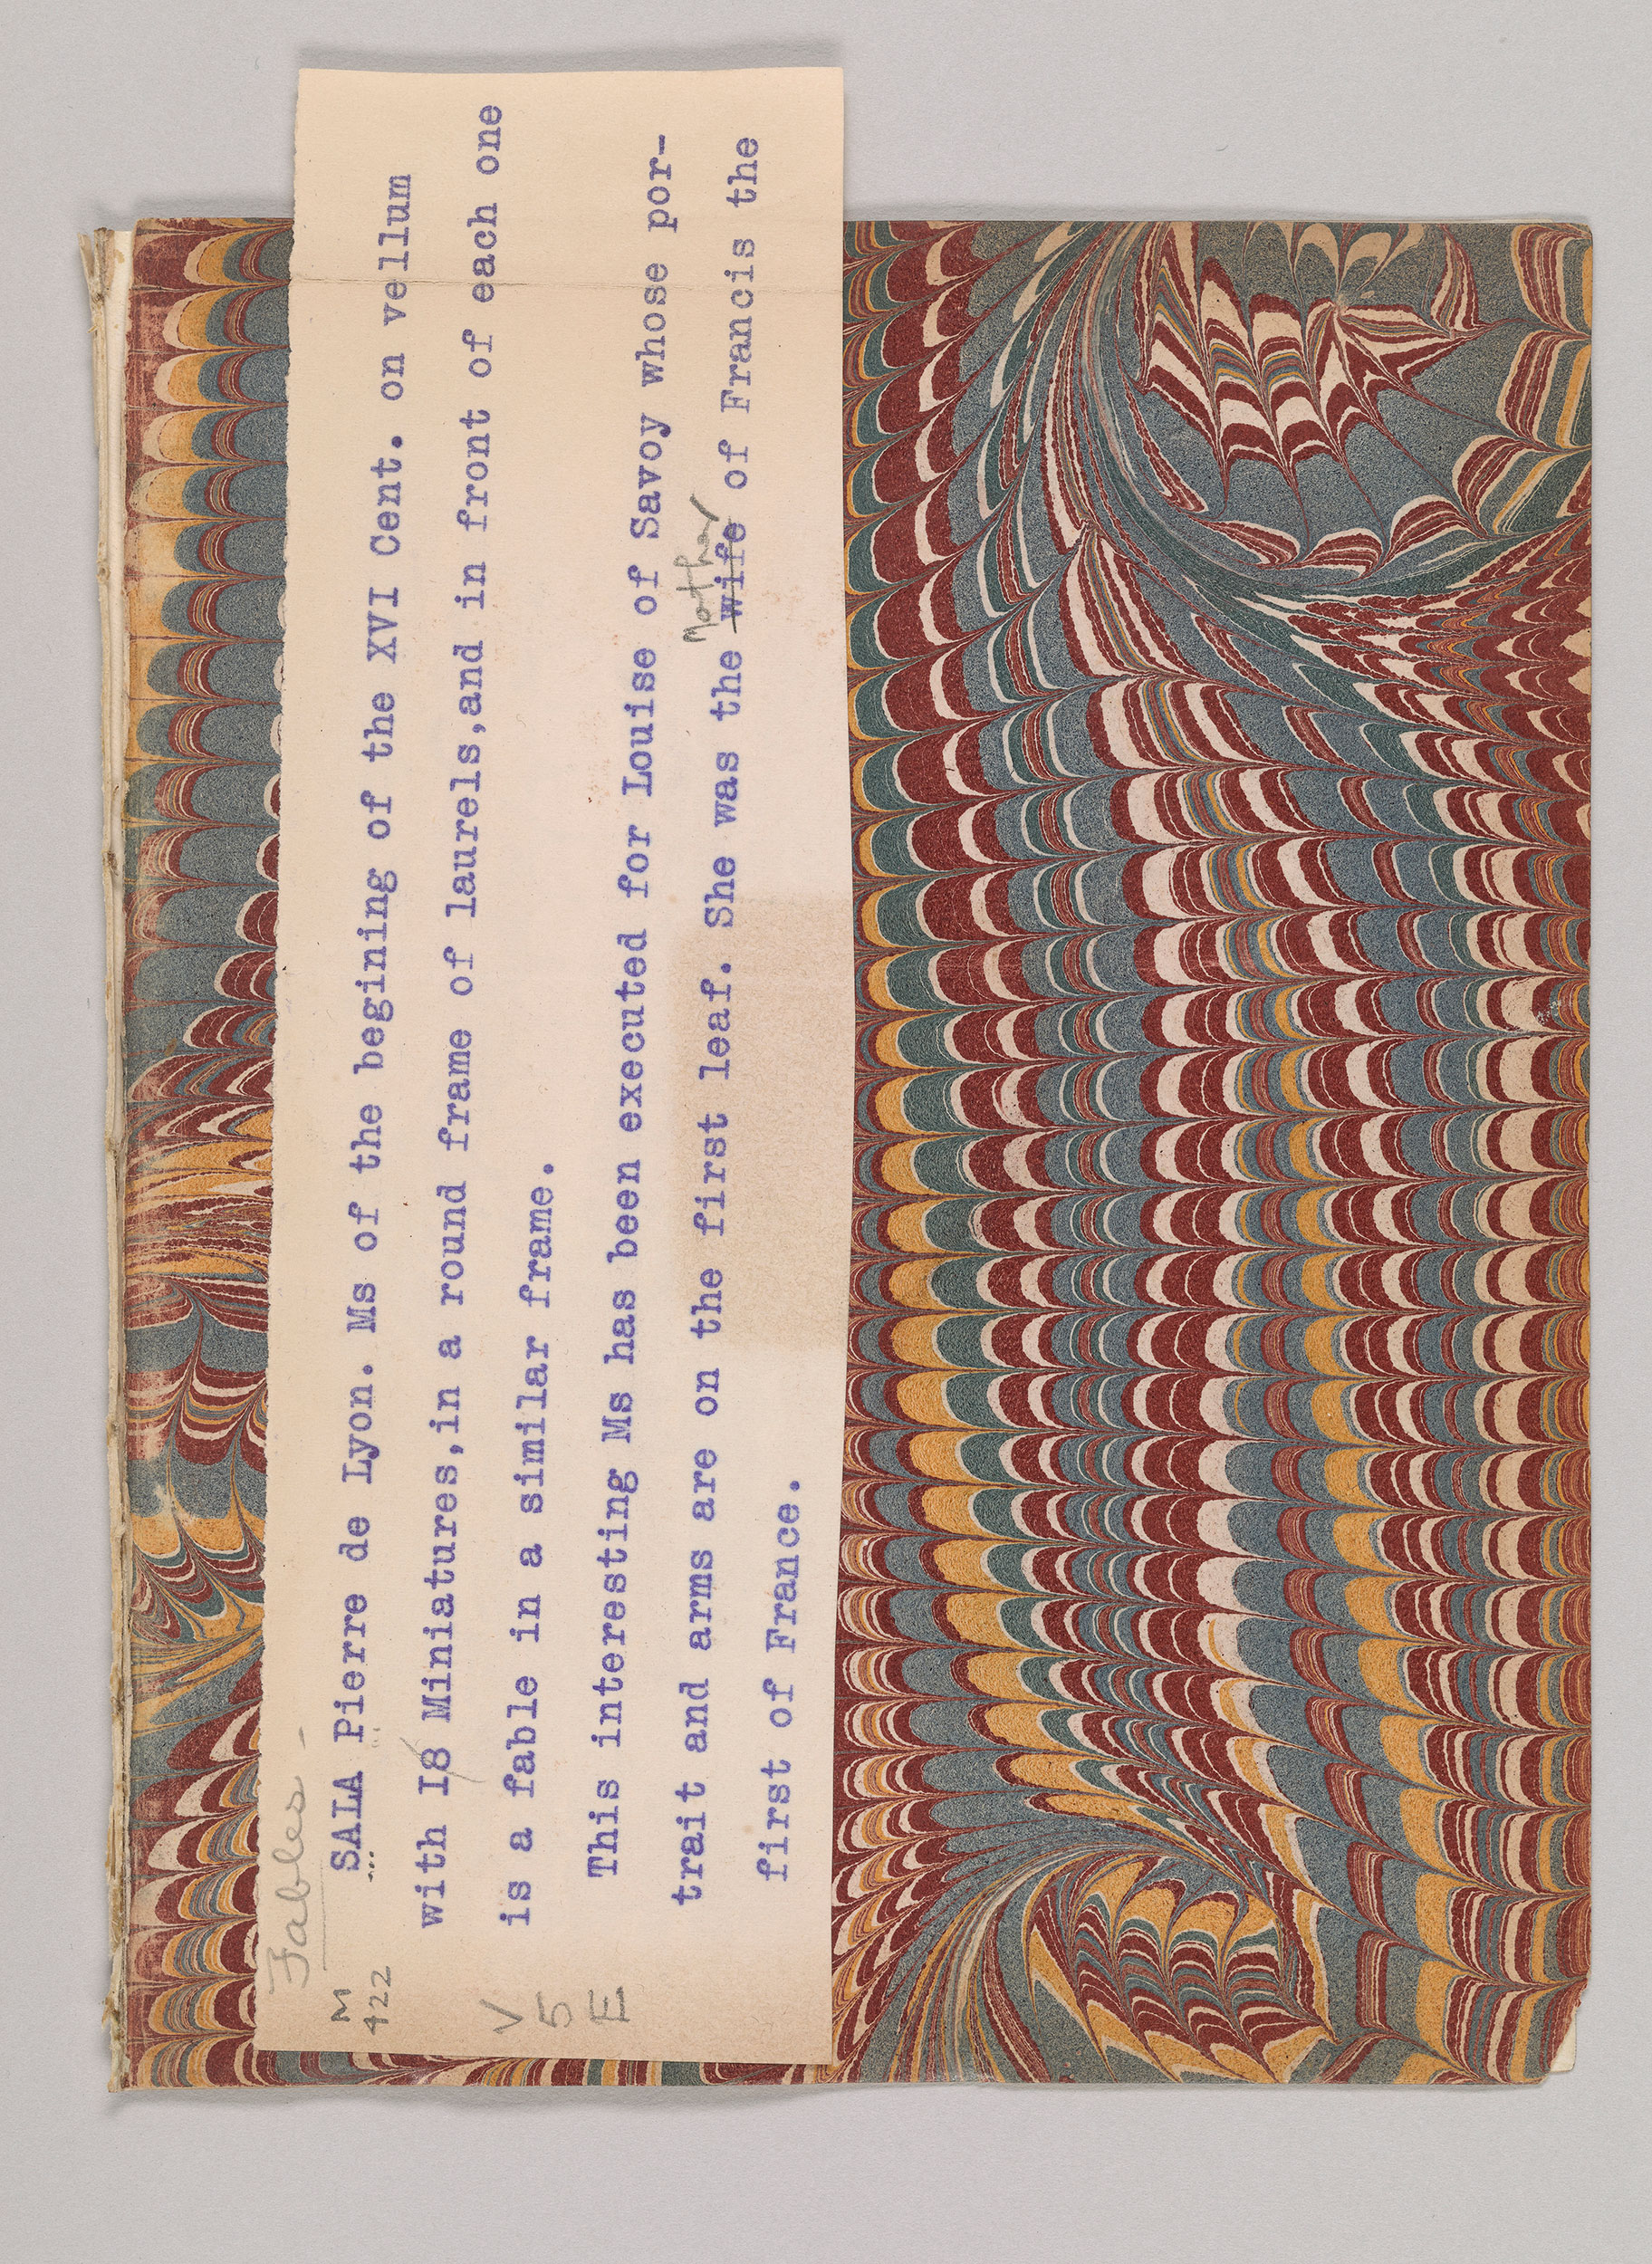 Fables -
M
422
SALA Pierre de Lyon. Ms of the begining of the XVI Cent. on vellum
with I8 Miniatures,in a round frame of laurels,and in front of each one
is a fable in a similar frame.
V
5
E
This interesting Ms has been executed for Louise of Savoy whose por-
Mother
trait and arms are on the first leaf. She was the wife of Francis the
first of France.